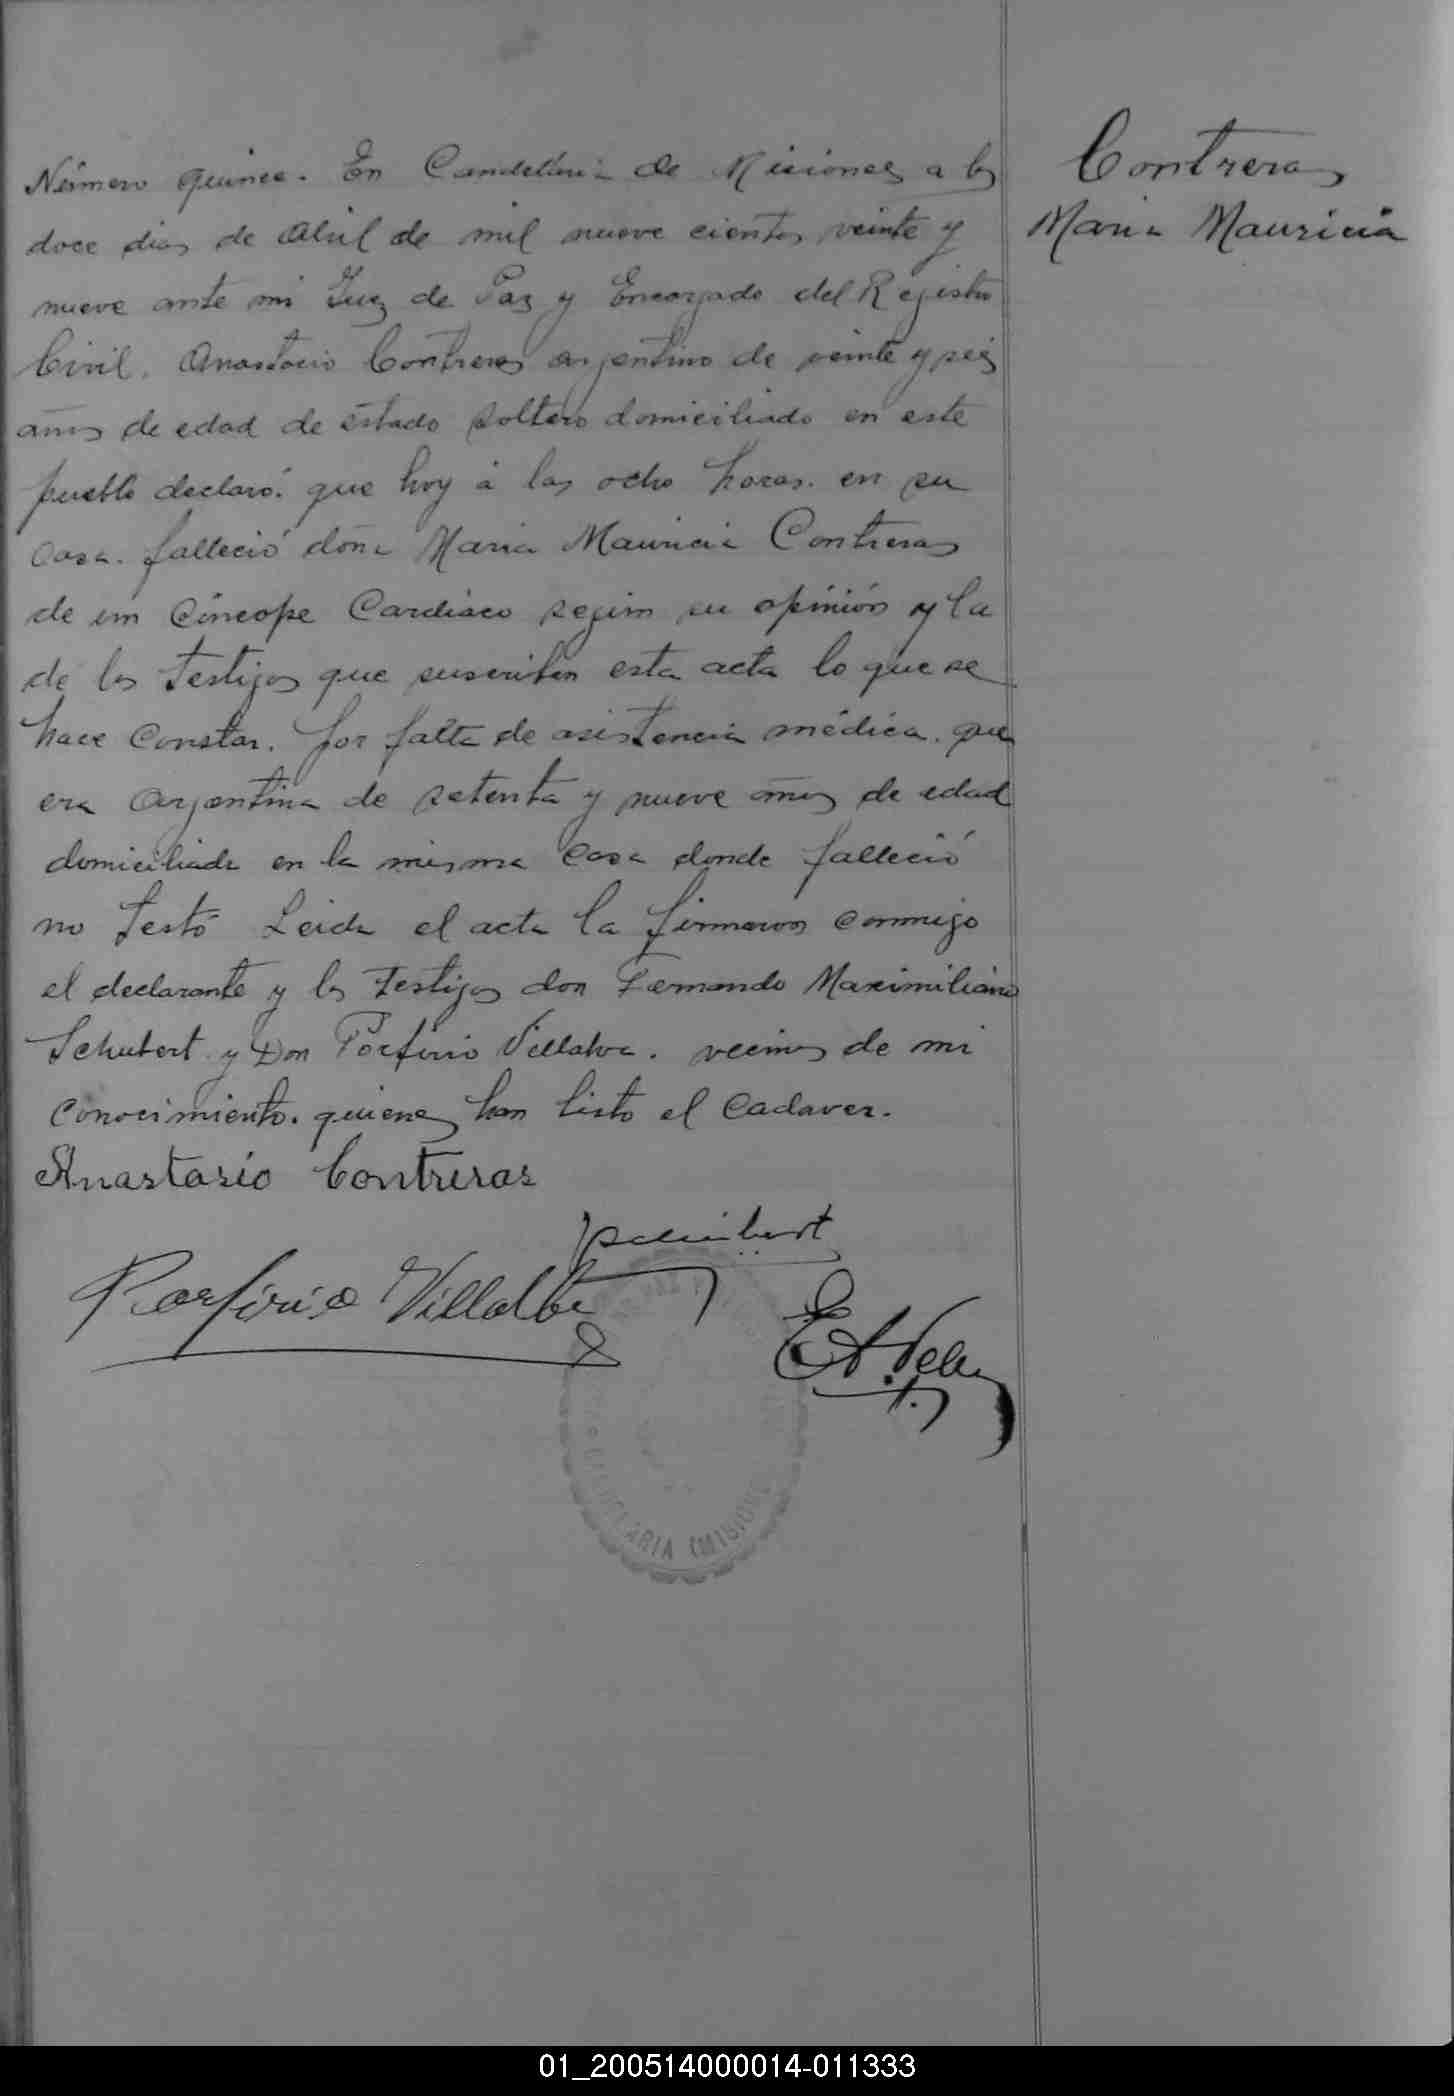 Contreras
Maria Mauricia
Número quince. En Candelaria de Misiones a los
doce dias de Abril de mil nueve cientos veinte y
nueve ante mi Juez de Paz y Encargado del Registro
Civil. Anastacio Contreras argentino de veinte y seis
años de edad de estado soltero domiciliado en este
pueblo declaró: que hoy á las ocho horas. en su
casa. falleció doña Maria Mauricia Contreras
de un Cíncope Cardiaco segun su opinión y la
de los testigos que suscriben esta acta lo que se
hace constar. por falta de asistencia médica. que
era Argentina de setenta y nueve años de edad
domiciliada en la misma casa donde falleció
no testó Leida el acta la firmaron conmigo
el declarante y los testigos don Fernando Maximiliano
Schubert y Don Porfirio Villalva. vecinos de mi
conocimiento. quienes han visto el cadaver.
Anastasio Contreras
Schubert
Porfirio Villalba
CANDELARIA (MISIONES
01_200514000014-011333